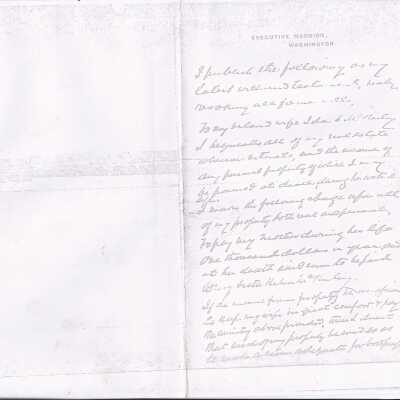 EXECUTIVE MANSION,
WASHINGTON
I publish the following as my
latest will and testament, hereby
revoking all former wills.
To my beloved wife Ida S. McKinley
I bequeath all of my real estate
wherever situate, and the income of
any personal property of which I may
be possessed at death, during her natural
life.
I make the following charge upon all
of my property both real and personal,
To pay my mother during her life
One thousand dollars a year, and
at her death said sum to be paid
to my sister Helen McKinley.
If the income from property be insufficient
to keep my wife in great comfort & pay
the annuity above provided, then I direct
that such of my property be sold so as
to make a sum adequate for both purposes